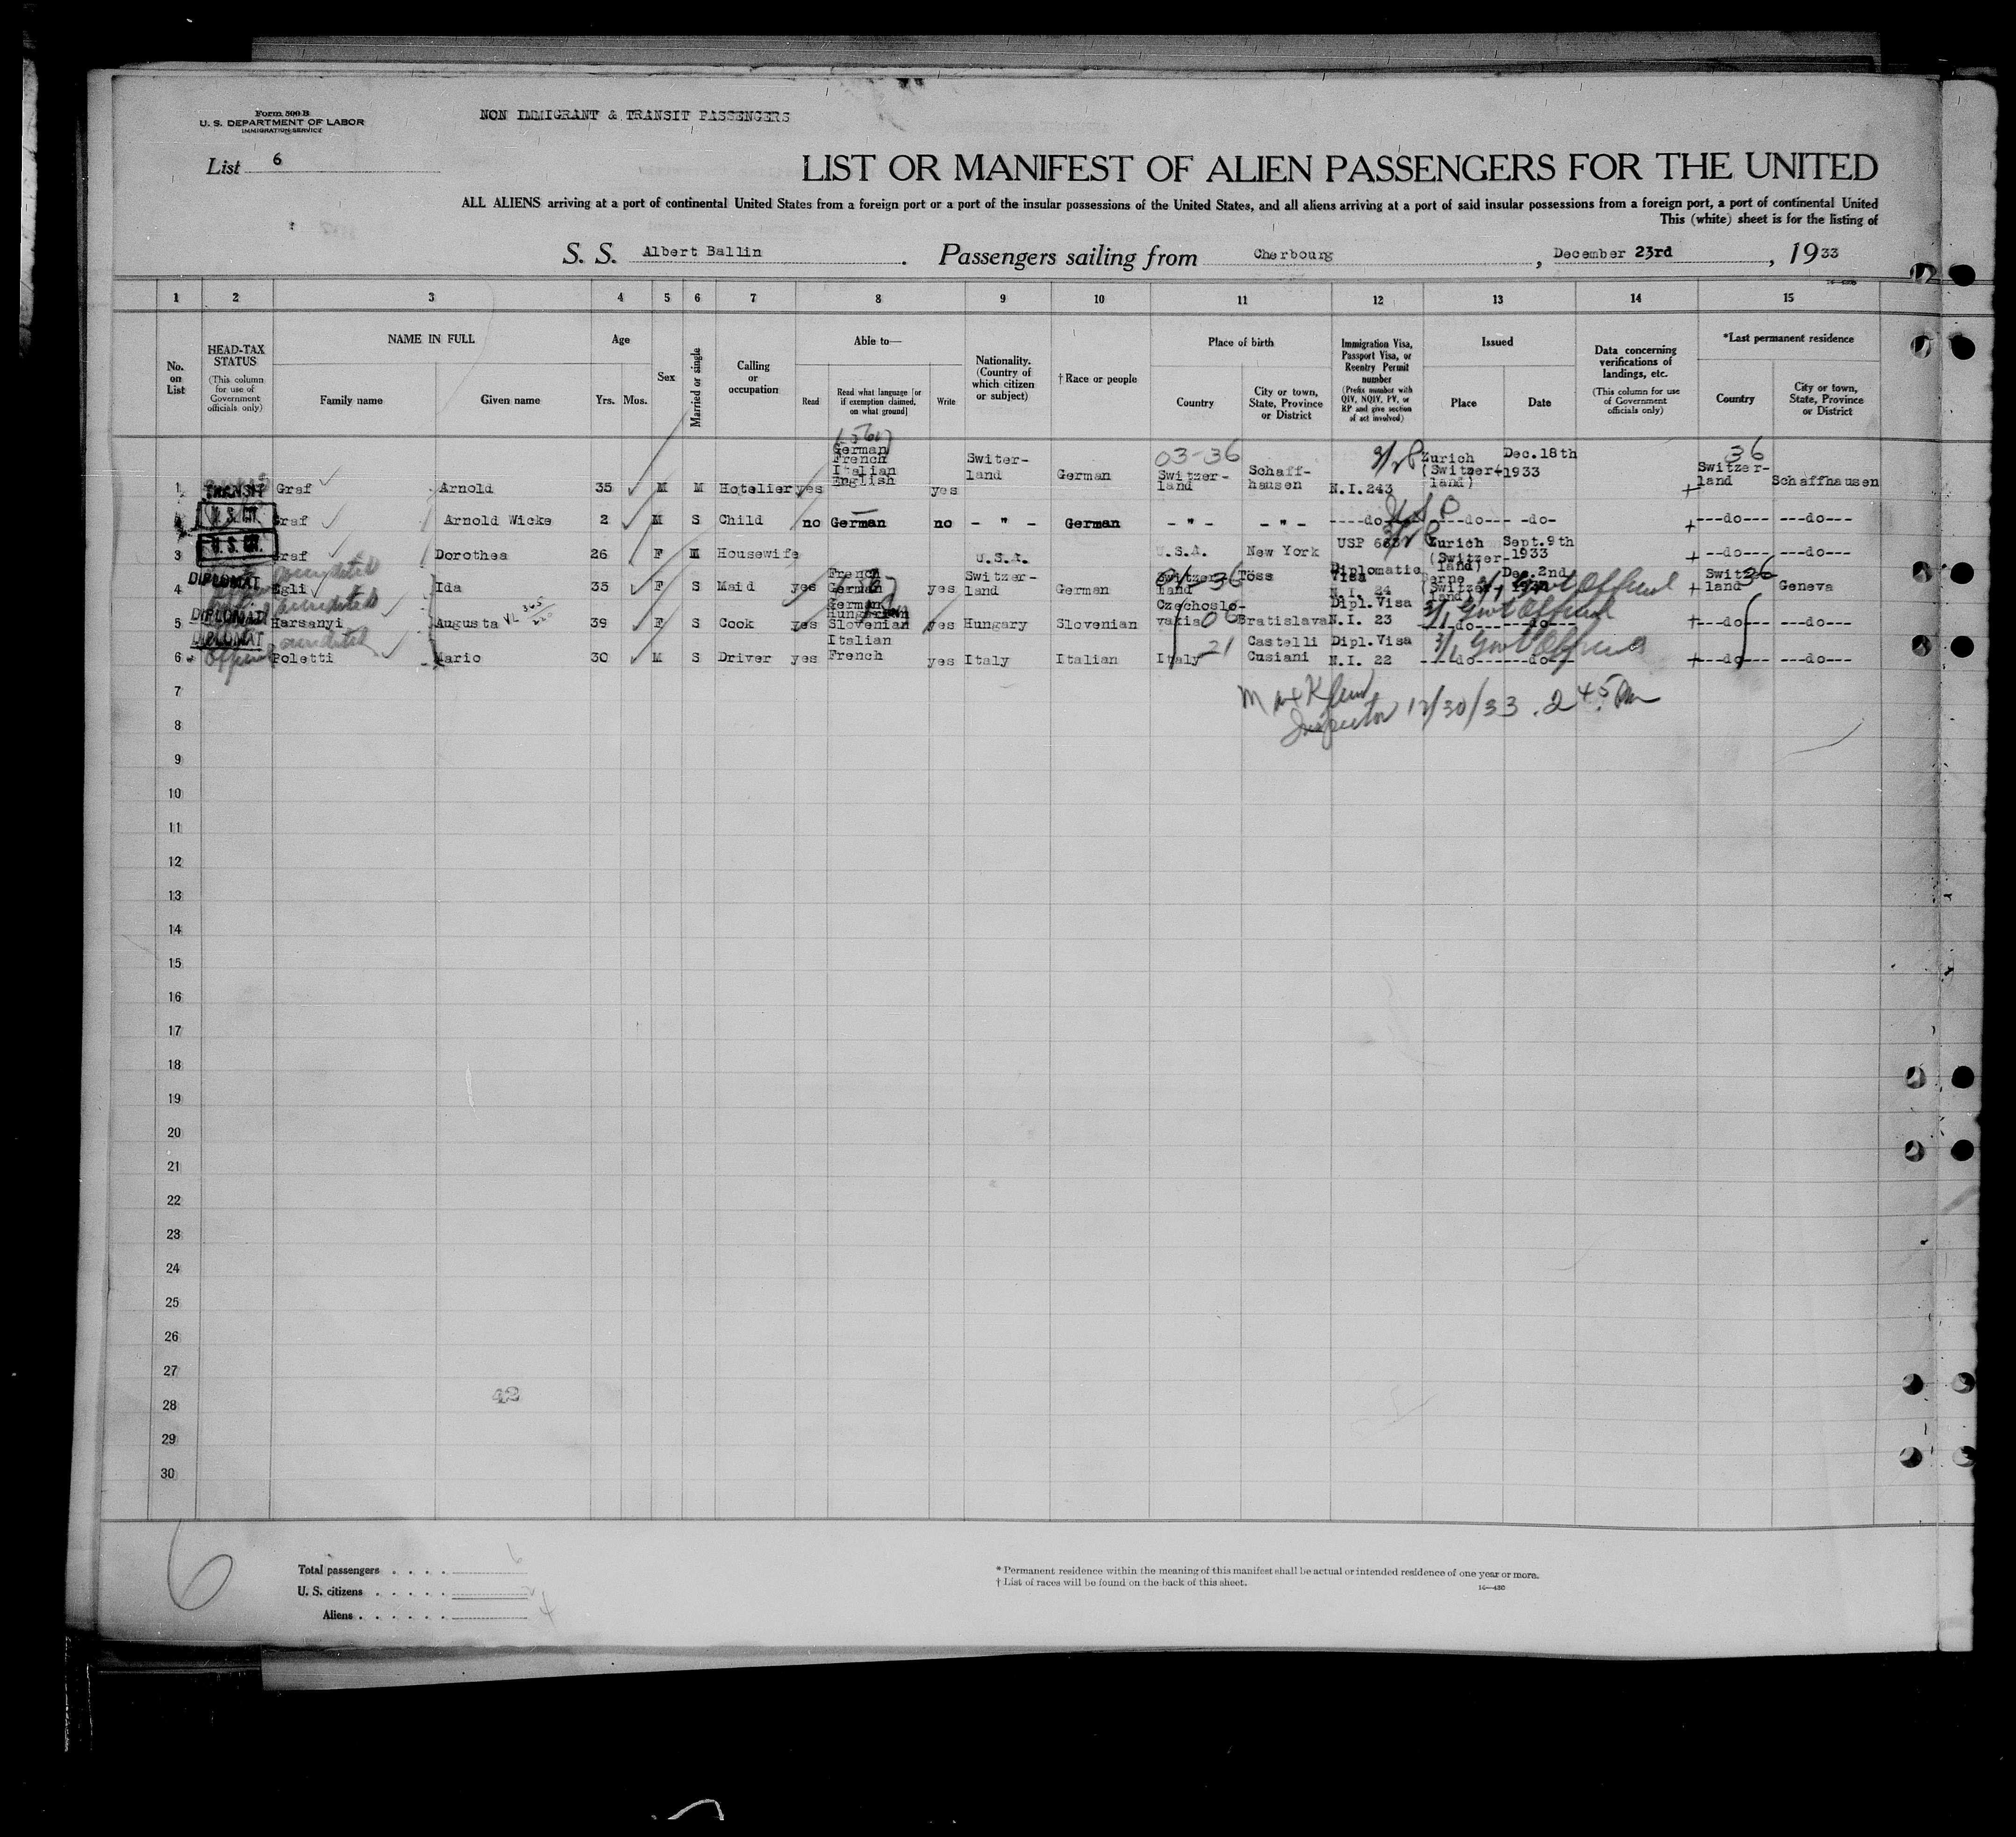 Form 500 B
U. S. DEPARTMENT OF LABOR
IMMIGRATION SERVICE
NON IMMIGRANT & TRANSIT PASSENGERS
List 6
LIST OR MANIFEST OF ALIEN PASSENGERS FOR THE UNITED
ALL ALIENS arriving at a port of continental United States from a foreign port or a port of the insular possessions of the United States, and all aliens arriving at a port of said insular possessions from a foreign port, a port of continental United
This (white) sheet is for the listing of
S. S. Albert Ballin . Passengers sailing from Cherbourg , December 23rd , 1933
1 2 3 4 5 6 7 8 9 10 11 12 13 14 15
No. on List
HEAD-TAX STATUS (This column for use of Government officials only)
NAME IN FULL
Family name
Given name
Age
Yrs. Mos.
Sex
Married or single
Calling or occupation
Able to—
Read
Read what language [or if exemption claimed, on what ground]
Write
Nationality. (Country of which citizen or subject)
†Race or people
Place of birth
Country
City or town, State, Province or District
Immigration Visa, Passport Visa, or Reentry Permit number (Prefix number with QIV, NQIV, PV, or RP and give section of act involved)
Issued
Place
Date
Data concerning verifications of landings, etc. (This column for use of Government officials only)
*Last permanent residence
Country
City or town, State, Province or District
1 TRANSIT Graf Arnold 35 M M Hotelier yes German French Italian English yes Switer-land German 03-36 Switzer-land Schaff-hausen N.I.243 Zurich (Switzer-land) Dec.18th 1933 36 Switzer-land Schaffhausen
U. S. CIT. Graf Arnold Wicke 2 M S Child no German no - " - German - " - - " - ----do---- USP ----do--- -do- ---do--- ---do---
3 U. S. CIT. Graf Dorothea 26 F M Housewife U.S.A. U.S.A. New York USP 663 Zurich (Switzer-land) Sept.9th 1933 ---do--- ---do---
4 DIPLOMAT Egli Ida 35 F S Maid yes French German yes Switzer-land German Switzer-land 36 Töss Diplomatic Visa N.I. 24 Berne (Switzer-land) Dec.2nd 1933 Govt Official Switzer-land 36 Geneva
5 DIPLOMAT Harsanyi Augusta 39 F S Cook yes German Hungarian Slovenian yes Hungary Slovenian Czechoslo-vakia 06 Bratislava Dipl.Visa N.I. 23 3/1 Govt Official ---do--- ---do--- ---do--- ---do---
6 DIPLOMAT Official Poletti Mario 30 M S Driver yes Italian French yes Italy Italian Italy 21 Castelli Cusiani Dipl.Visa N.I. 22 3/1 Govt Official ---do--- ---do--- ---do--- ---do---
7
Inspector 12/30/33 . 2 45
8
9
10
11
12
13
14
15
16
17
18
19
20
21
22
23
24
25
26
27
28
42
29
30
6
Total passengers . . . . 6
U. S. citizens . . . . . 2
Aliens . . . . . . 4
* Permanent residence within the meaning of this manifest shall be actual or intended residence of one year or more.
† List of races will be found on the back of this sheet.